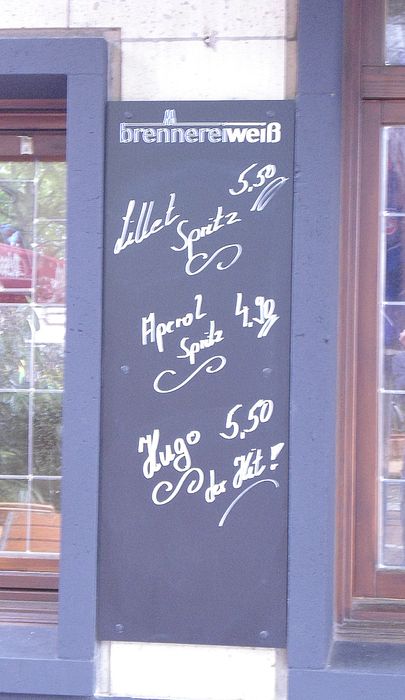 brennereiweiß
Lillet 5.50
Spritz
Aperol 4.90
Spritz
Hugo 5.50
der Hit!